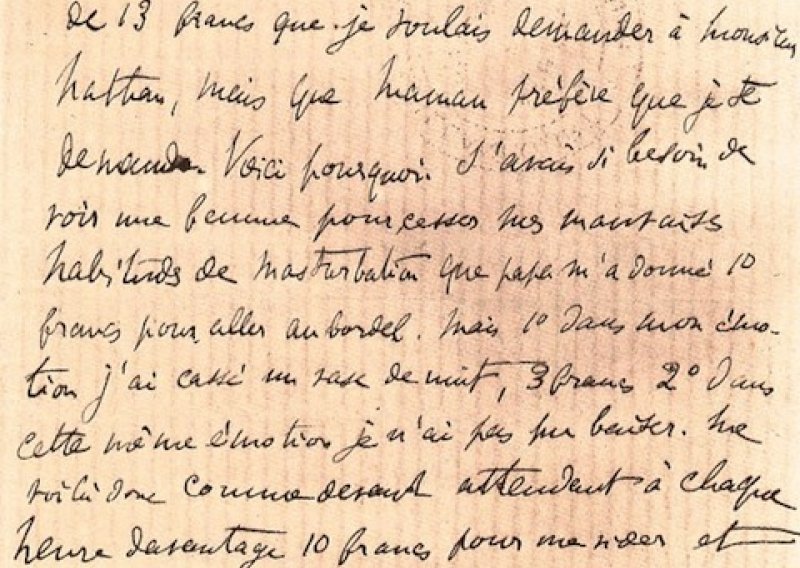 de 13 francs que je voulais demander à Monsieur
Nathan, mais que Maman préfère que je te
demande. Voici pourquoi. J'avais si besoin de
voir une femme pour cesser mes mauvaises
habitudes de masturbation que papa m'a donné 10
francs pour aller au bordel. Mais 1º dans mon émo-
tion j'ai cassé un vase de nuit, 3 francs 2º dans
cette même émotion je n'ai pas pu baiser. Me
voilà donc comme devant attendant à chaque
heure davantage 10 francs pour me vider et